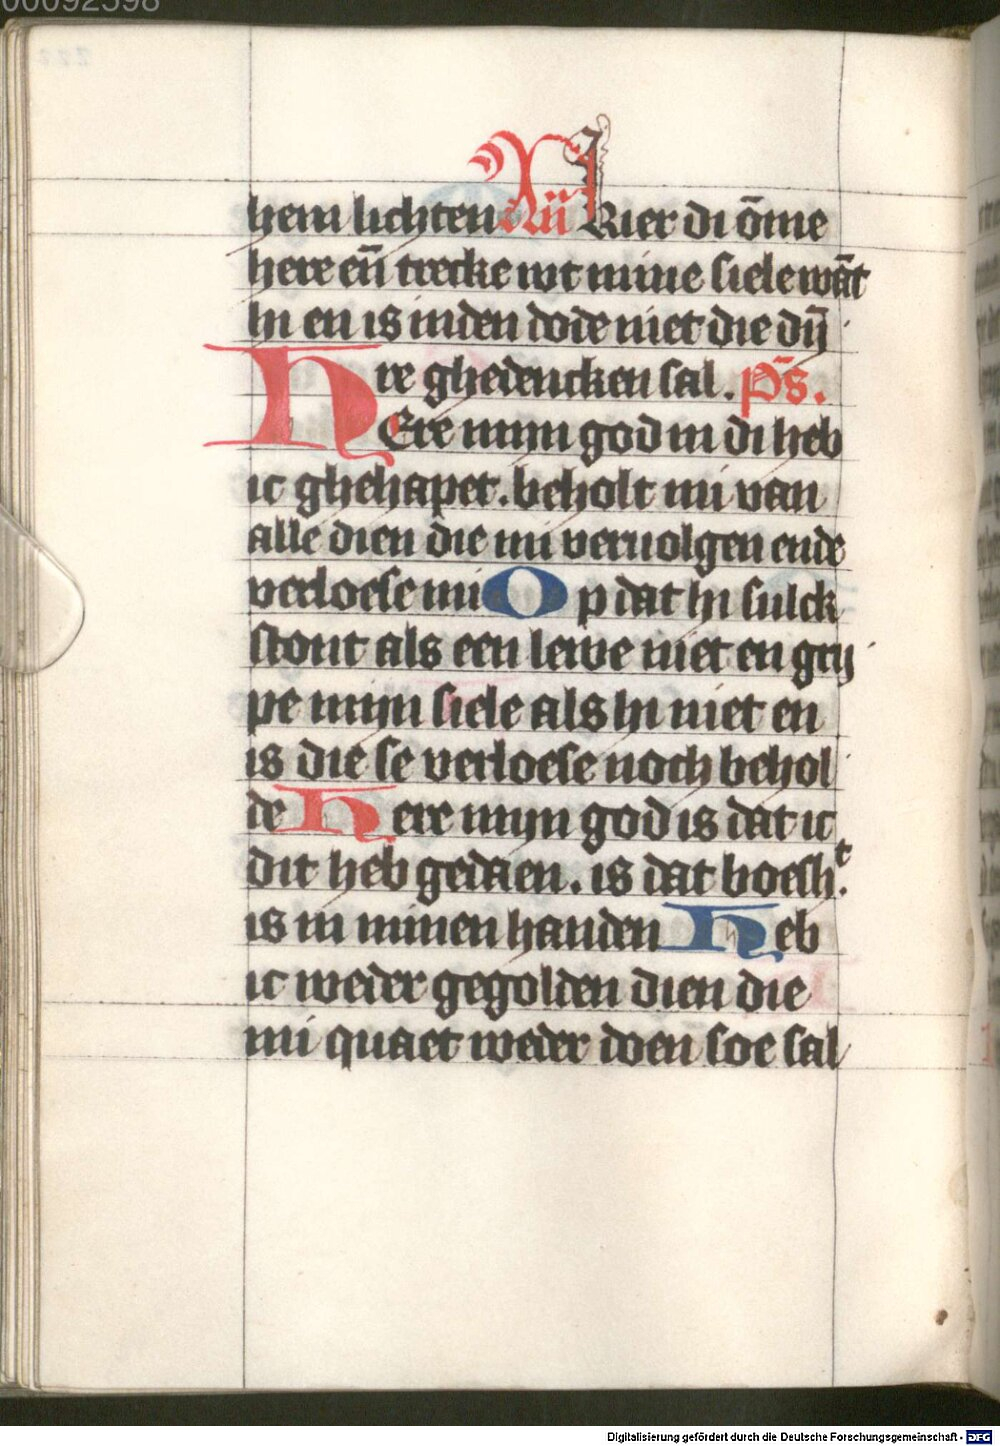 00092598
hem lichten Añ Kier di ōme
here eñ trecke wt mine siele wāt
hi en is inden dode niet die dij
re ghedencken sal. ps̄.
HEre mijn god in di heb
ic ghehapet. beholt mi van
alle dien die mi veruolgen ende
verloese mi Op dat hi sulck
stont als een lewe niet en grij
pe mijn siele als hi niet en
is die se verloese noch behol
de Here mijn god is dat ic
dit heb gedaen. is dat boesh.t
is in minen handen Heb
ic weder gegolden dien die
mi quaet weder doen soe sal
Digitalisierung gefördert durch die Deutsche Forschungsgemeinschaft - DFG